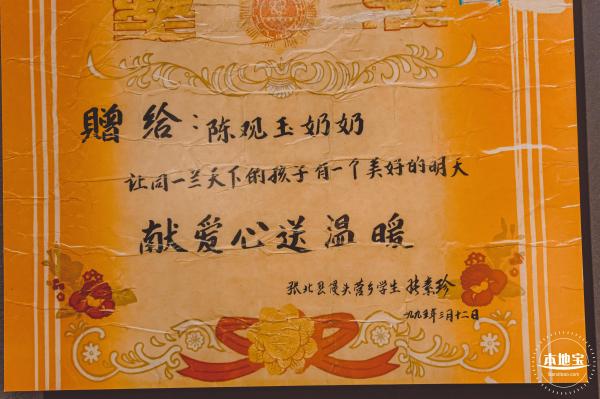 赠给:陈观玉奶奶
让同一兰天下的孩子有一个美好的明天
献爱心送温暖
张北县馒头营乡学生 张素珍
一九九五年三月十二日
本地宝